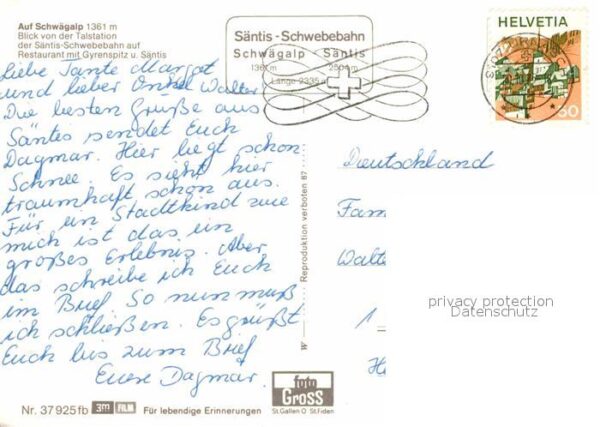 Auf Schwägalp 1361 m
Blick von der Talstation
der Säntis-Schwebebahn auf
Restaurant mit Gyrenspitz u. Säntis
Liebe Tante Margot
und lieber Onkel Walter
Die besten Grüße aus
Säntis sendet Euch
Dagmar. Hier liegt schon
Schnee. Es sieht hier
traumhaft schön aus.
Für ein Stadtkind wie
mich ist das ein
großes Erlebnis. Aber
das schreibe ich Euch
im Brief. So nun muß
ich schließen. Es grüßt
Euch bis zum Brief
Eure Dagmar.
Nr. 37925fb 3m FILM Für lebendige Erinnerungen
Säntis-Schwebebahn
Schwägalp - Säntis
1361 m 2504 m
Länge 2335 m
HELVETIA
30
Reproduktion verboten 87
W
foto
GROSS
St.Gallen O St.Fiden
Deutschland
Fam
Walte
1
H
privacy protection
Datenschutz